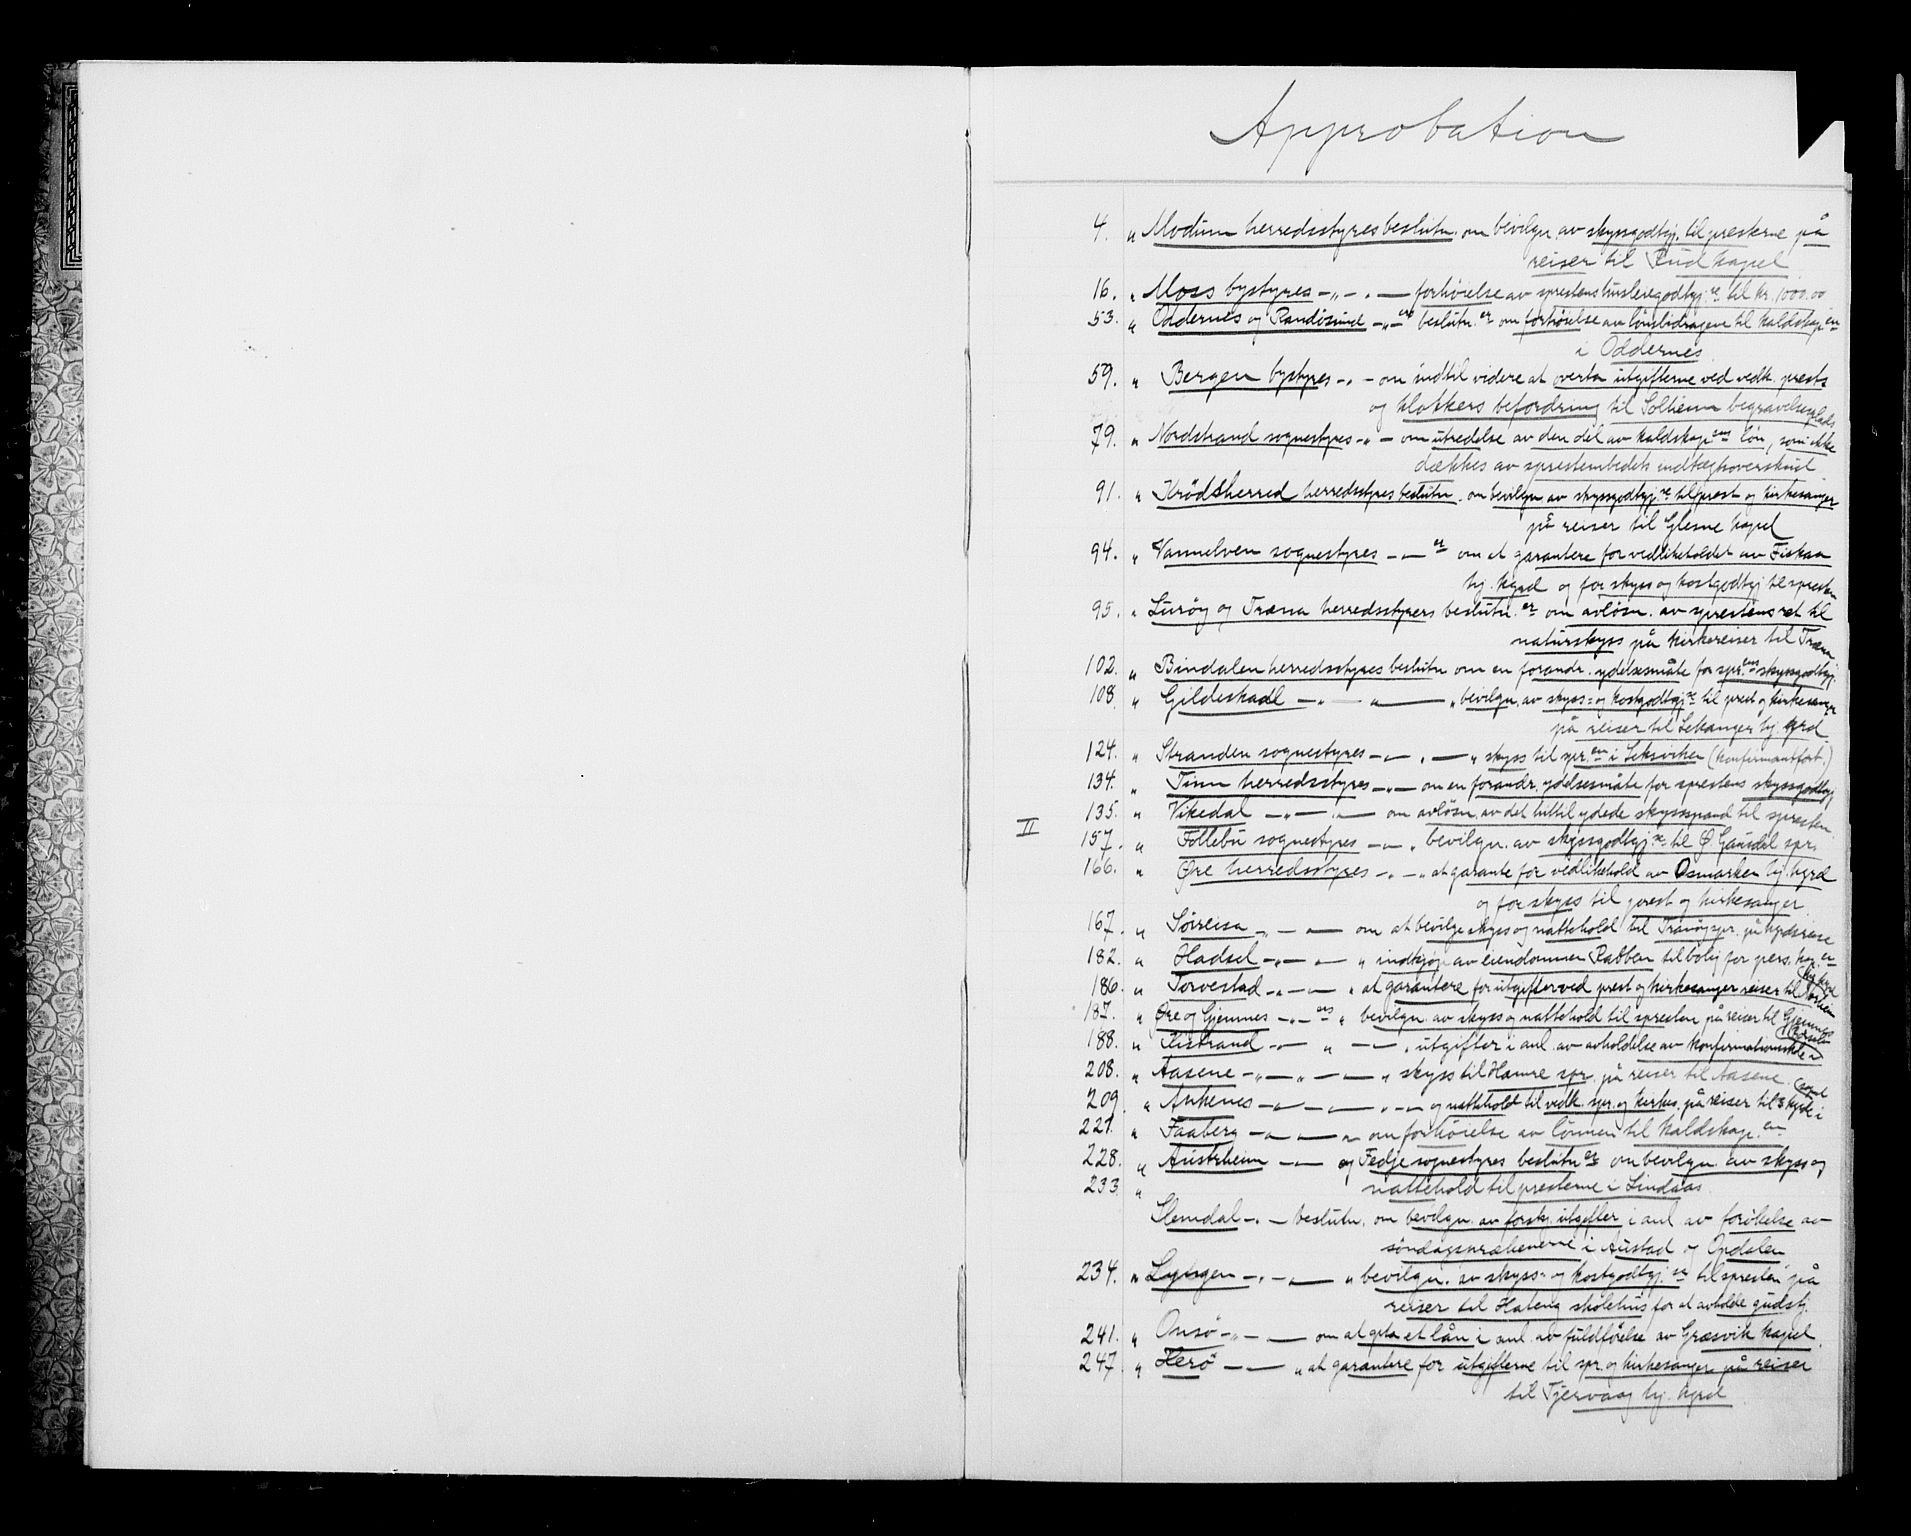 Approbation
4. " Modum herredsstyres beslutn. om bevilgn. av skyssgodtgj. til presterne på
reiser til Rud kapel
16. " Moss bystyres - " - . — forhöielse av sprestens husleiegodtgj.se til kr. 1000.00
53. " Oddernes og Randösund - " - ers beslutn.er om forhöielse av lönsbidragene til kaldskap.en
i Oddernes.
59. " Bergen bystyres - " - om indtil videre at overta utgifterne ved vedk. prests
og klokkers befordring til Solheim begravelsesplads
79. " Nordstrand sognestyres - " - om utredelse av den del av kaldskap.ens lön, som ikke
dækkes av sprestembedets indtægtsoverskud
91. " Krödsherred herredsstyres beslutn. om bevilgn. av skyssgodtgj.se til prest og kirkesanger
på reiser til Glesne kapel
94. " Vannelven sognestyres - — er om at garantere for vedlikeholdet av Fiskaa
hj. kgrd og for skyss og kostgodtgj til spresten
95. " Luröy og Træna herredsstyrers beslutn.er om avlösn. av sprestens ret til
naturskyss på kirkereiser til Træna
102. " Bindalen herredsstyres beslutn om en forandr. ydelsesmåte for spr.ens skyssgodtgj.
108. " Gildeskaal - " - " — " bevilgn. av skyss- og kostgodtgj.se til prest og kirkesanger
på reiser til Lekanger hj. kgrd.
124. " Stranden sognestyres - " - . — " skyss til spr.en i Leksviken (konfirmantforb.)
134. " Tinn herredsstyres - " - om en forandr. ydelsesmåte for sprestens skyssgodtgj
135. " Vikedal - " - " — om avlösn. av det hittil ydede skyssspand til spresten.
II
157. " Follebu sognestyres - " - " bevilgn. av skyssgodtgj.se til Ø Gausdal spr.
166. " Øre herredsstyres - " - " at garante for vedlikehold av Osmarken hj. kgrd
og for skyss til prest og kirkesanger
167. " Sörreisa - " - " — om at bevilge skyss og nattehold til Tranöy spr. på kgdsreise
182. " Hadsel - " - " — " indkjöp av eiendommen Rabben til bolig for pers. kap.en
186. " Torvestad - " - " — " at garantere for utgifter ved prest og kirkesanger reiser til
187. " Øre og Gjemnes - " - ers " bevilgn. av skyss og nattehold til spresten på reiser til Gjemnes
188. " Kistrand - " - " - — " utgifter i anl. av avholdelse av konfirmationsskole i
208. " Aasene - " - " - " — " skyss til Hamre spr. på reiser til Aasene.
209. " Ankenes - " - " — " - " og nattehold til vedk. spr. og kirkes. på reiser til 3 kgrde i
221. " Faaberg - " - " — " om forhöielse av lönnen til kaldskap.en
228. " Austrheim - " — og Fedje sognestyres beslutn.er om bevilgn. av skyss og
233. " nattehold til presterne i Lindaas.
Slemdal - " - beslutn. om bevilgn. av forskj. utgifter i anl. av forökelse av
söndagsprækenerne i Austad og Opdalen
234. " Lyngen - . - " — " bevilgn. av skyss- og kostgodtgj.se til spresten på
reiser til Hateng skolehus for at avholde gudstj.
241. " Onsö - " - " — om at opta et lån i anl. av fuldförelse av Græsvik kapel.
247. " Herö - " — " at garantere for utgifterne til spr. og kirkesanger på reiser
til Tjervaag hj. kgrd